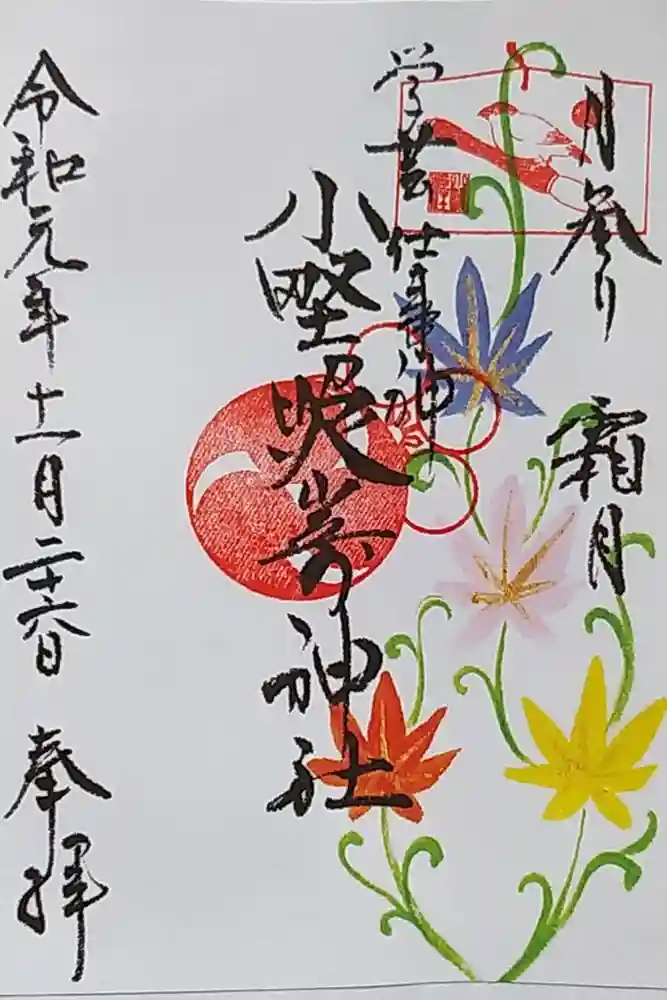 月参り 霜月
学芸 仕事の神
小野照崎神社
令和元年十一月二十六日 奉拝